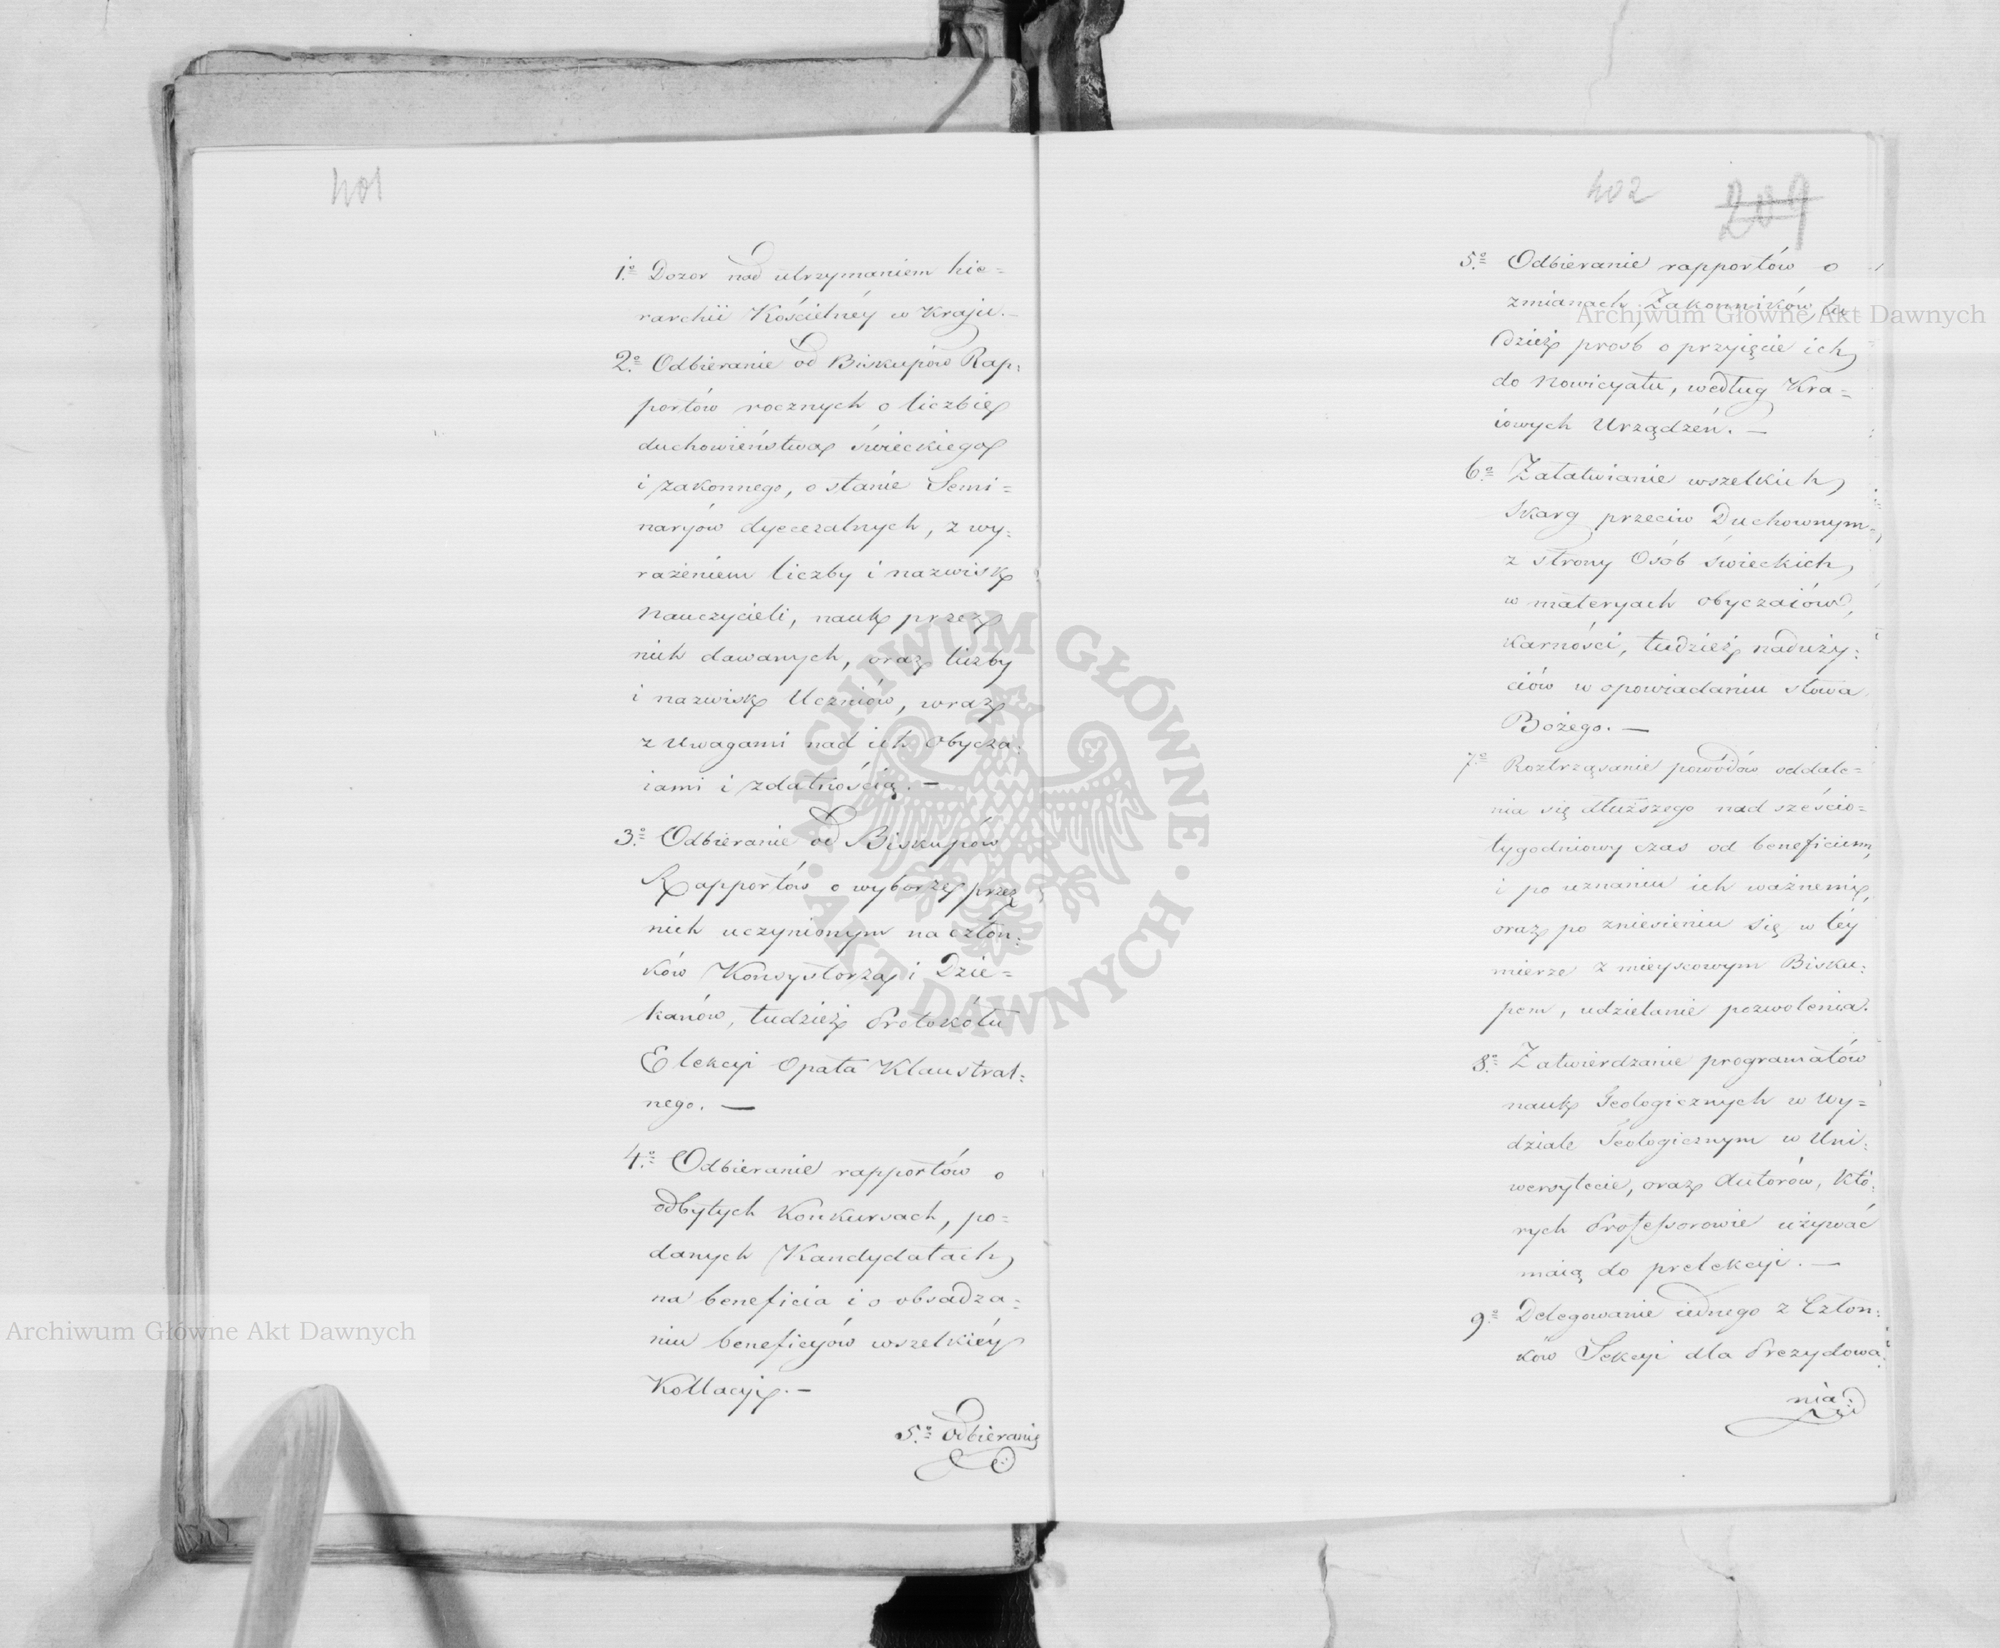 401
1º Dozor nad utrzymaniem hie=
rarchii Kościelnéy w Kraju.—
2º Odbieranie od Biskupów Rap:
portów rocznych o liczbie
duchowieństwa świeckiego
i zakonnego, o stanie Semi=
naryów dyecezalnych, z wy:
rażeniem liczby i nazwisk
Nauczycieli, nauk przez
nich dawanych, oraz liczby
i nazwisk Uczniów, wraz
z Uwagami nad ich Obycza:
iami i zdatnością.—
3º Odbieranie od Biskupów
Rapportów o wyborze przez
nich uczynionym na człon:
ków Konsystorza i Dzie=
kanów, tudzież Protokółu
Elekcyi Opata Klaustral:
nego.—
4º Odbieranie rapportów o
odbytych Konkursach, po=
danych Kandydatach
na beneficia i o obsadza=
niu beneficyów wszelkiéy
Kollacyi.—
5º Odbieranie
402 209
5º Odbieranie rapportów o
zmianach Zakonników, tu
dzież prośb o przyięcie ich
do Nowicyatu, według Kra=
iowych Urządzeń.—
6º Załatwianie wszelkich
Skarg przeciw Duchownym
z strony Osób świeckich,
w materyach obyczaiów,
karności, tudzież naduży:
ciów w opowiadaniu słowa
Bożego.—
7º Roztrząsanie powodów oddale=
nia się dłuższego nad sześcio=
tygodniowy czas od beneficium,
i po uznaniu ich ważnemi,
oraz po zniesieniu się w téy
mierze z mieyscowym Bisku:
pem, udzielanie pozwolenia.
8º Zatwierdzanie programatów
nauk Teologicznych w Wy=
dziale Teologicznym w Uni:
wersytecie, oraz Autorów, któ:
rych Professorowie używać
maią do prelekcyi.—
9º Delegowanie iednego z Człon:
ków Sekcyi dla Prezydowa:
nia
Archiwum Główne Akt Dawnych
Archiwum Główne Akt Dawnych
ARCHIWUM GŁÓWNE · AKT DAWNYCH ·